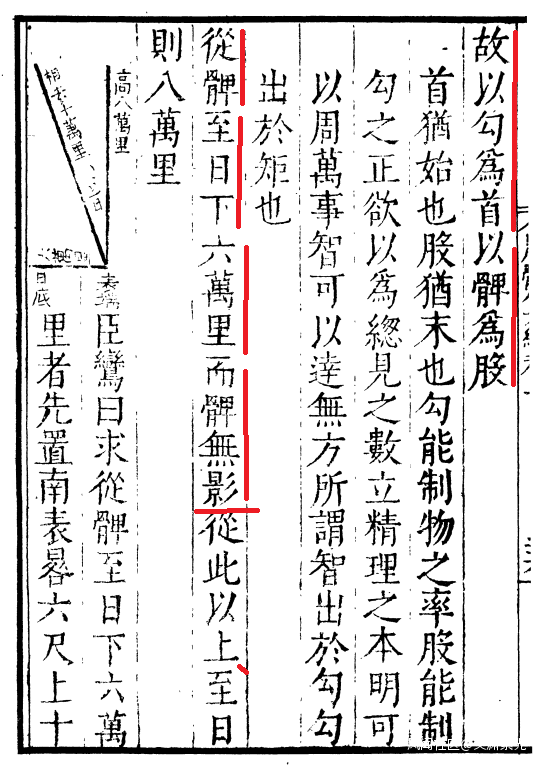 故以勾爲首以髀爲股
首猶始也股猶末也勾能制物之率股能制
勾之正欲以爲緫見之數立精理之本明可
以周萬事智可以達無方所謂智出於勾勾
出於矩也
從髀至日下六萬里而髀無影從此以上至日
則八萬里
高八萬里
表端
臣鸞曰求從髀至日下六萬
日底
里者先置南表晷六尺上十